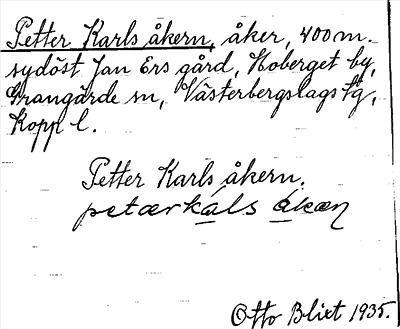 Petter Karls åkern, åker, 400 m.
sydöst Jan Ers gård, Hoberget by,
Grangärde sn, Västerbergslags tg,
Kopp l.
Petter Karls åkern.
petærkals åkæɳ
Otto Blixt 1935.